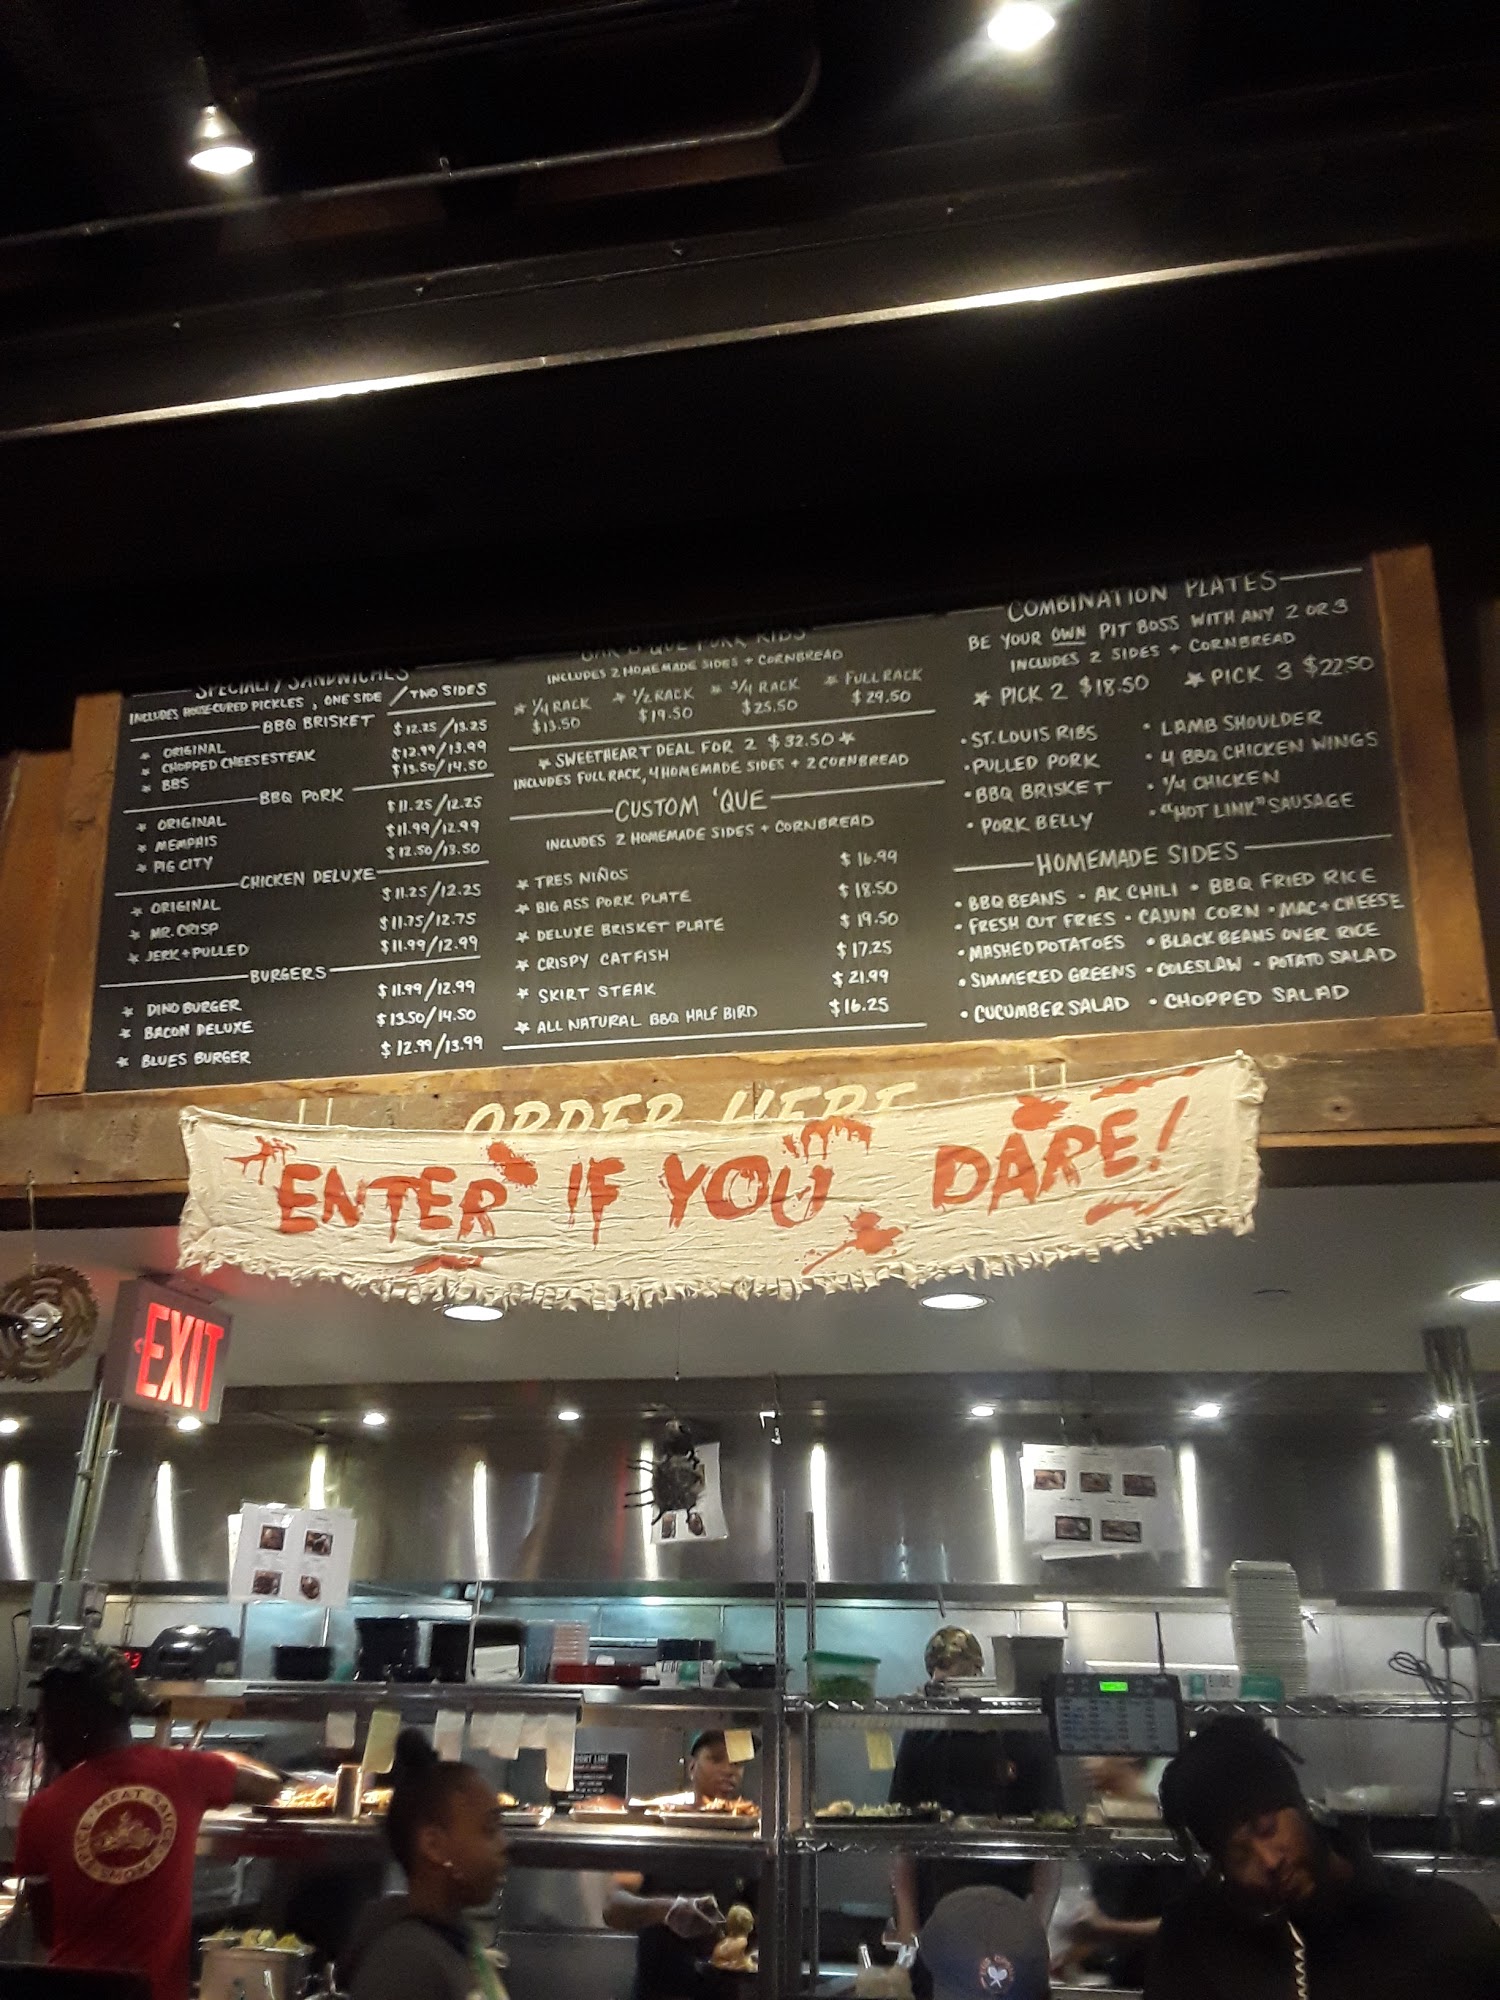 SPECIALTY SANDWICHES
INCLUDES HOUSE-CURED PICKLES, ONE SIDE / TWO SIDES
BBQ BRISKET
★ ORIGINAL $12.25/13.25
★ CHOPPED CHEESESTEAK $12.99/13.99
★ BBS $13.50/14.50
BBQ PORK
★ ORIGINAL $11.25/12.25
★ MEMPHIS $11.99/12.99
★ PIG CITY $12.50/13.50
CHICKEN DELUXE
★ ORIGINAL $11.25/12.25
★ MR. CRISP $11.75/12.75
★ JERK + PULLED $11.99/12.99
BURGERS
★ DINO BURGER $11.99/12.99
★ BACON DELUXE $13.50/14.50
★ BLUES BURGER $12.99/13.99
BAR-B-QUE PORK RIBS
INCLUDES 2 HOMEMADE SIDES + CORNBREAD
★ 1/4 RACK ★ 1/2 RACK ★ 3/4 RACK ★ FULL RACK
$13.50 $19.50 $25.50 $29.50
★ SWEETHEART DEAL FOR 2 $32.50 ★
INCLUDES FULL RACK, 4 HOMEMADE SIDES + 2 CORNBREAD
CUSTOM 'QUE
INCLUDES 2 HOMEMADE SIDES + CORNBREAD
★ TRES NIÑOS $16.99
★ BIG ASS PORK PLATE $18.50
★ DELUXE BRISKET PLATE $19.50
★ CRISPY CATFISH $17.25
★ SKIRT STEAK $21.99
★ ALL NATURAL BBQ HALF BIRD $16.25
COMBINATION PLATES
BE YOUR OWN PIT BOSS WITH ANY 2 OR 3
INCLUDES 2 SIDES + CORNBREAD
★ PICK 2 $18.50 ★ PICK 3 $22.50
• ST. LOUIS RIBS • LAMB SHOULDER
• PULLED PORK • 4 BBQ CHICKEN WINGS
• BBQ BRISKET • 1/4 CHICKEN
• PORK BELLY • "HOT LINK" SAUSAGE
HOMEMADE SIDES
• BBQ BEANS • AK CHILI • BBQ FRIED RICE
• FRESH CUT FRIES • CAJUN CORN • MAC + CHEESE
• MASHED POTATOES • BLACK BEANS OVER RICE
• SIMMERED GREENS • COLESLAW • POTATO SALAD
• CUCUMBER SALAD • CHOPPED SALAD
ORDER HERE
"ENTER" IF YOU DARE!
EXIT
MEAT · SAUCE · SPICE · SMOKE